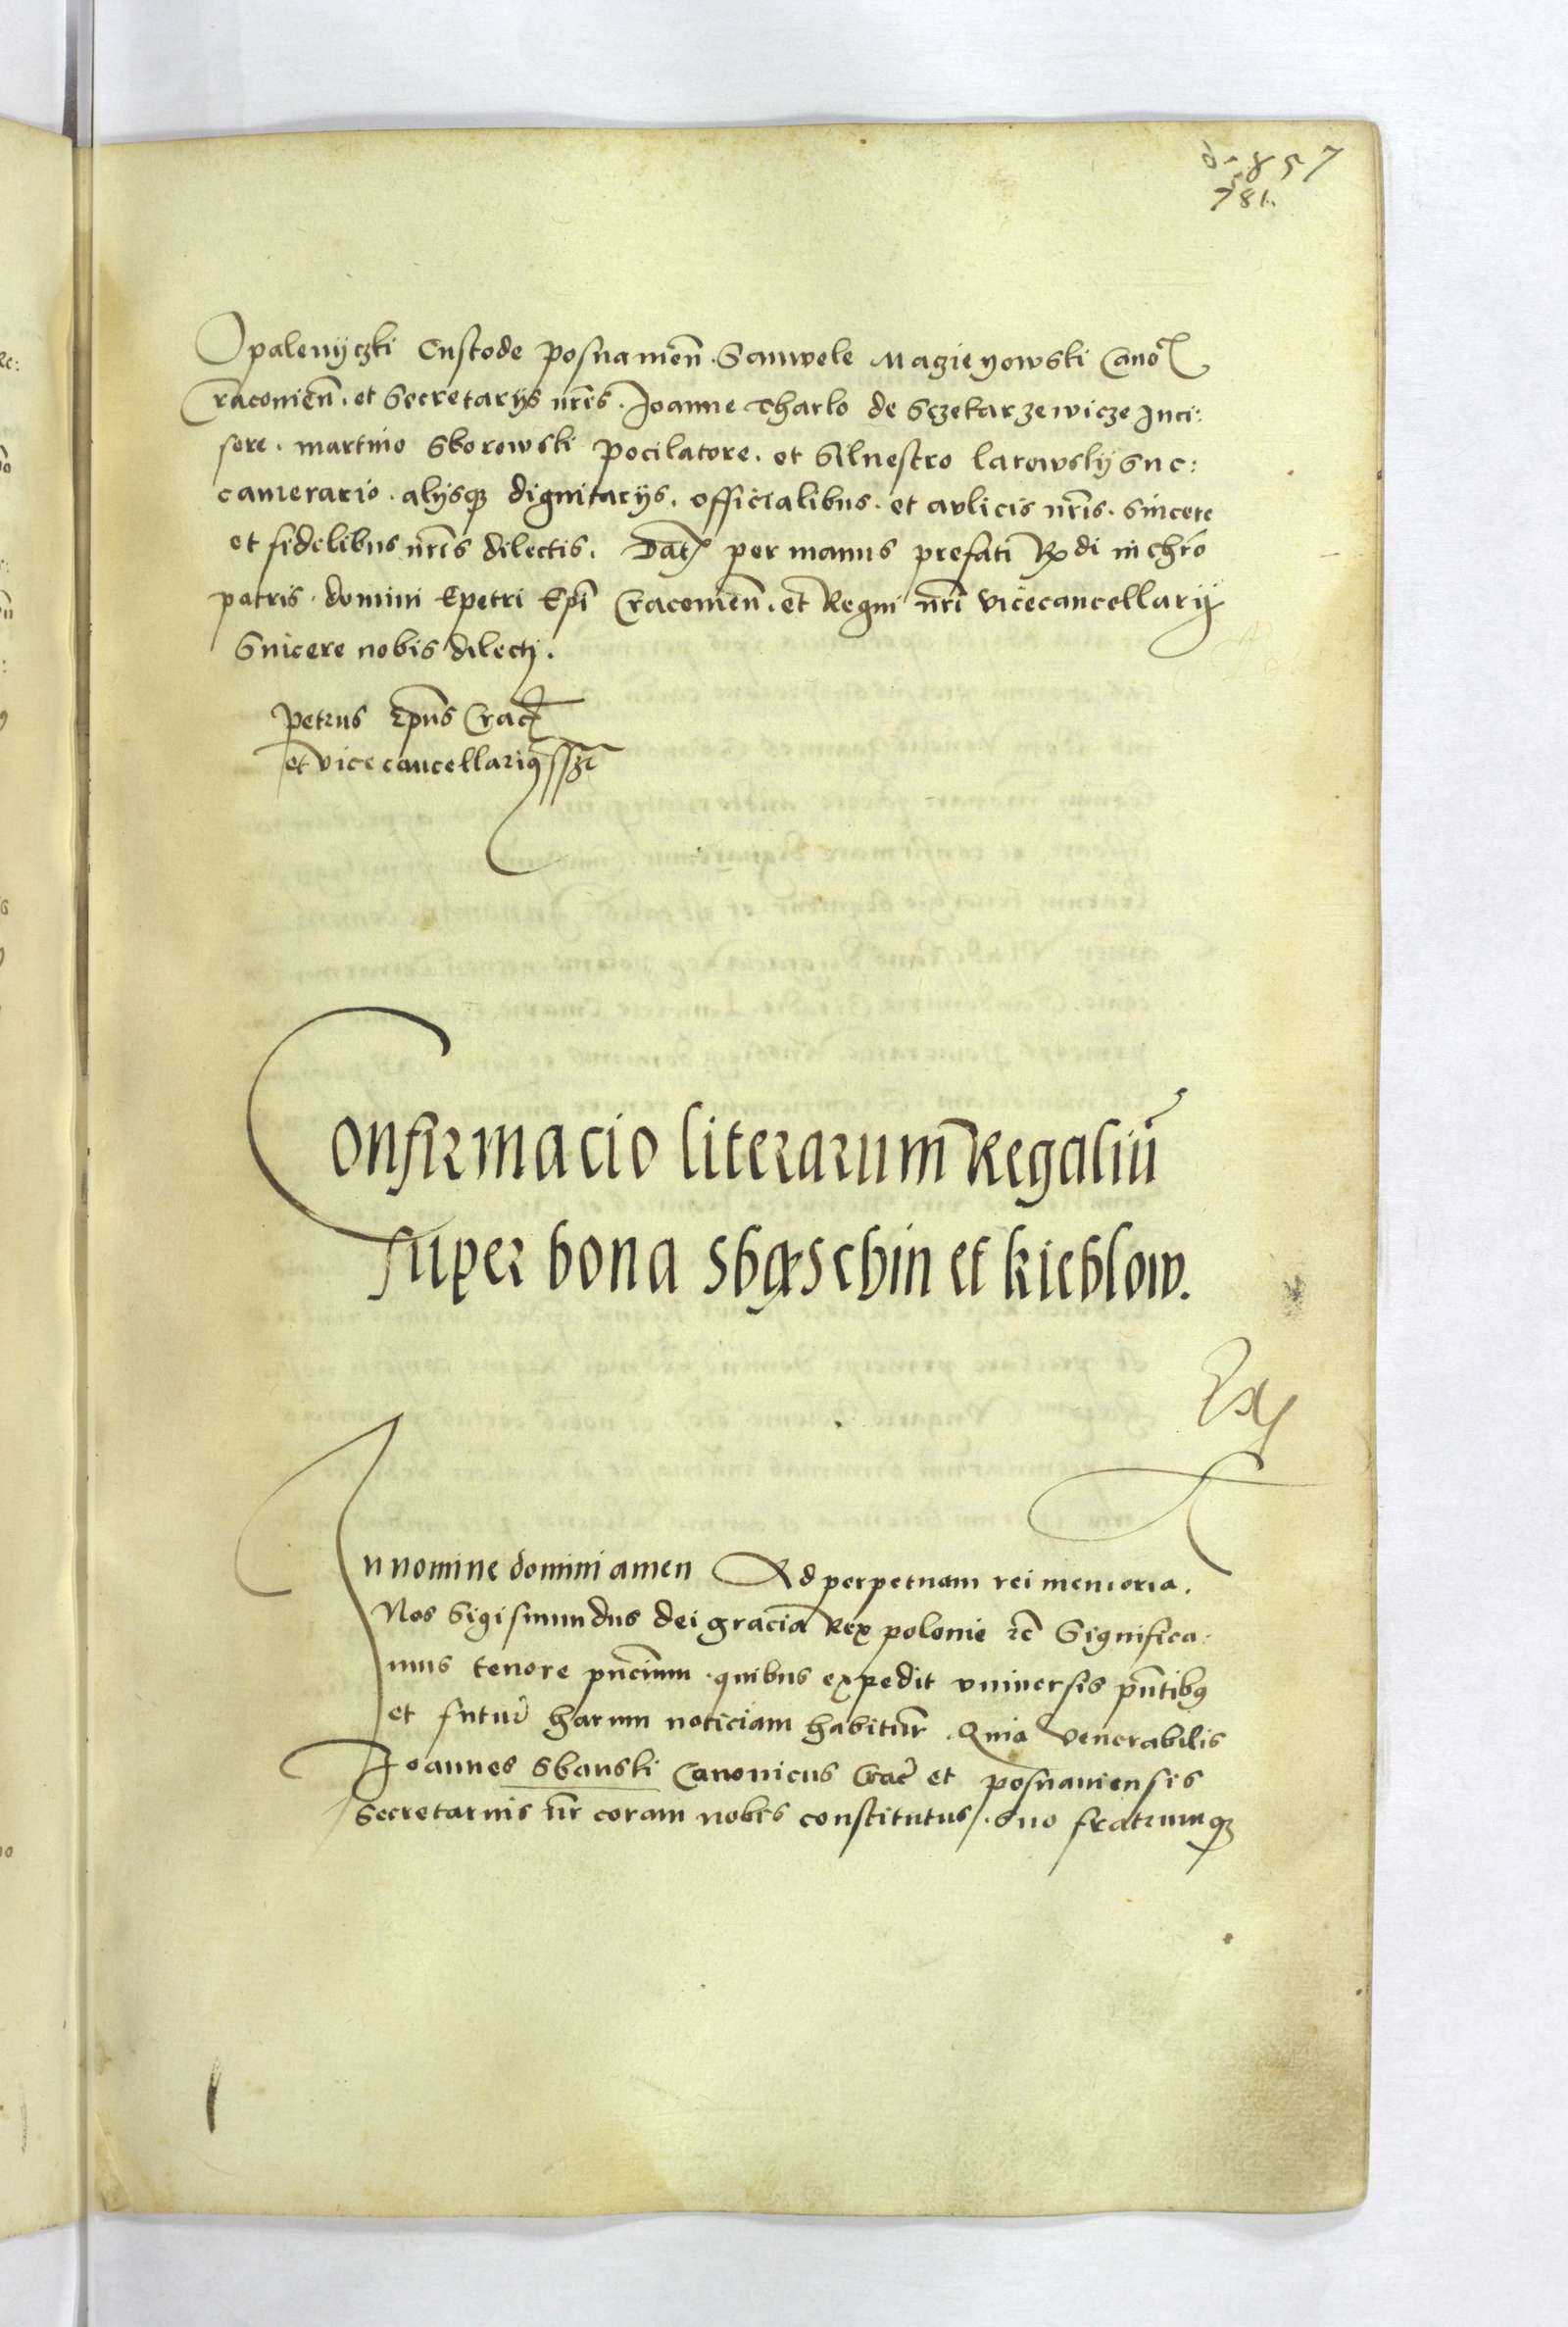 857
781.
Opalenyczki Custode posnamen̄. Samuele Magieyowski Cano
Cracouien̄. et Secretarijs nr̄is. Joanne Tharlo de Sczekarzewicze Inci:
sore. martino Sborowski pocilatore. et Siluestro larowsky Suc:
camerario. alijsq3 dignitarijs. officialibus. et aulicis nr̄is. sincere
et fidelibus nr̄is dilectis. Dat̄ per manus prefati R̄di in chr̄o
patris. domini petri Ep̄i Cracouien̄. et Regni nr̄i vicecancellarij
Sincere nobis dilecti.
petrus ep̄us Crac̄
et vicecancellari9 ss̄t
Confirmacio literarum Regaliū
super bona Sbąschin et kieblow.
In nomine domini amen Ad perpetuam rei memoria.
Nos Sigismundus dei gracia Rex polonie rc̄ Significa:
mus tenore pn̄cium. quibus expedit vniuersis pn̄tib9
et futur̄ harum noticiam habitur̄. Quia venerabilis
Joannes Sbanski Canonicus Crac̄ et posnaniensis
Secretarius nr̄ coram nobis constitutus. suo fratrumq3